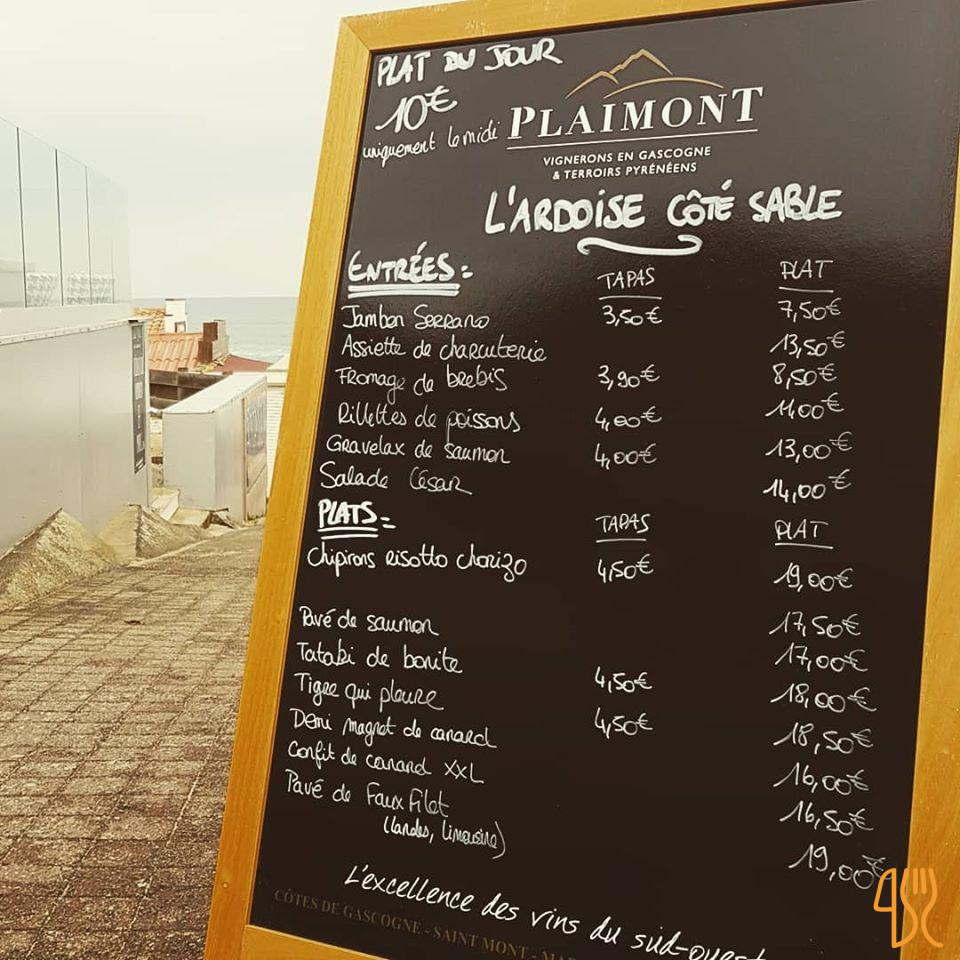 PLAT DU JOUR
10€
uniquement le midi
PLAIMONT
VIGNERONS EN GASCOGNE
& TERROIRS PYRÉNÉENS
L'ARDOISE CÔTÉ SABLE
ENTRÉES: TAPAS PLAT
Jambon Serrano 3,50€ 7,50€
Assiette de charcuterie 13,50€
Fromage de brebis 3,90€ 8,50€
Rillettes de poissons 4,00€ 11,00€
Gravelax de saumon 4,00€ 13,00€
Salade César 14,00€
PLATS: TAPAS PLAT
Chipirons risotto chorizo 4,50€ 19,00€
Pavé de saumon 17,50€
Tataki de bonite 4,50€ 17,00€
Tigre qui pleure 4,50€ 18,00€
Demi magret de canard 18,50€
Confit de canard XXL 16,00€
Pavé de Faux Filet 16,50€
(landes, limousine) 19,00€
L'excellence des vins du sud-ouest
CÔTES DE GASCOGNE - SAINT MONT - MA